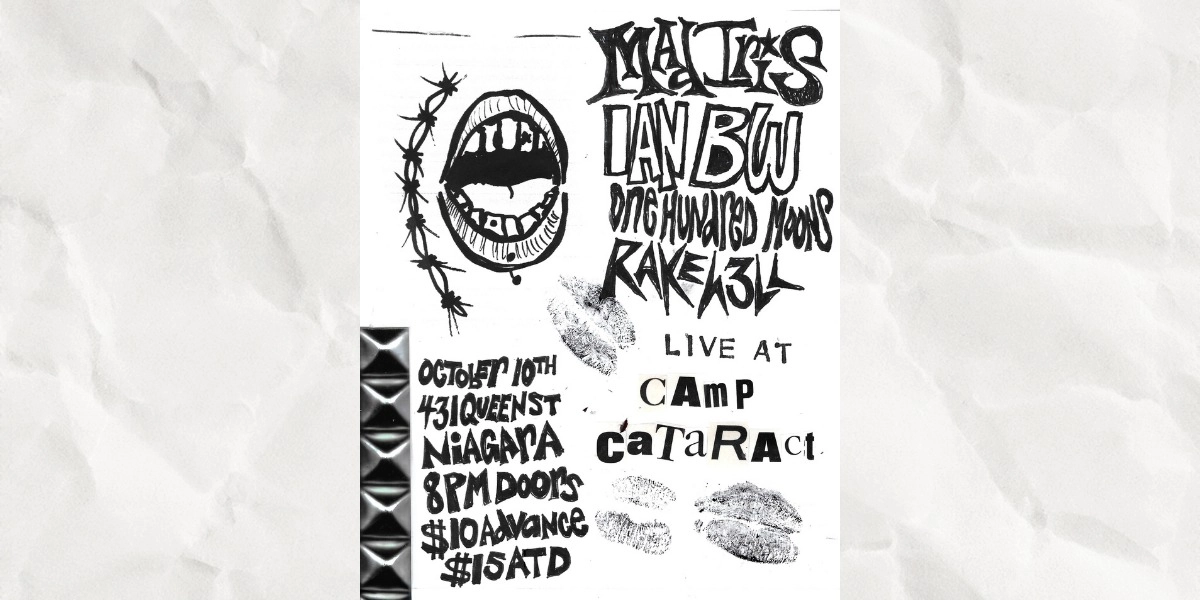 MAd Iris
IAN BW
ONE HUNDRED MOONS
RAKEh3LL
LIVE AT
CAmP
caTaRAct
OCTOBER 10TH
431 QUEEN ST
NiAGArA
8PM DOOrS
$10 AdvANCE
$15 ATD